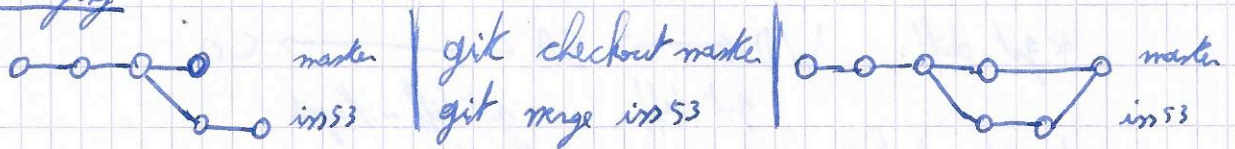 master
iss53
git checkout master
git merge iss53
master
iss53